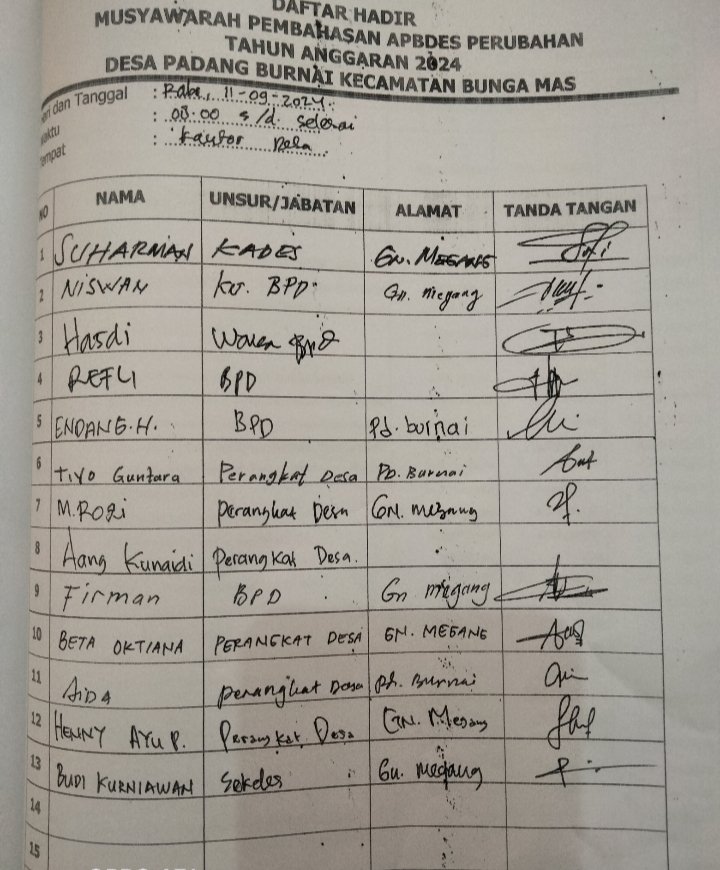 DAFTAR HADIR
MUSYAWARAH PEMBAHASAN APBDES PERUBAHAN
TAHUN ANGGARAN 2024
DESA PADANG BURNAI KECAMATAN BUNGA MAS
dan Tanggal : Rabu, 11-09-2024.
: 08.00 s/d. selesai
: Kantor Desa
NO NAMA UNSUR/JABATAN ALAMAT TANDA TANGAN
1 SUHARMAN KADES GN. MEGANG
2 NISWAN KU. BPD. Gn. megang
3 Hasdi Waka BPD
4 REFLI BPD
5 ENDANG.H. BPD Pd. burnai
6 TIYO Guntara Perangkat Desa PD. Burnai
7 M.ROGI perangkat Desa GN. megang
8 Aang Kunaidi perangkat Desa.
9 Firman BPD Gn megang
10 BETA OKTIANA PERANGKAT DESA GN. MEGANG
11 AIDA perangkat Desa Pd. Burnai
12 HENNY AYU P. Perangkat Desa GN. Megang
13 BUDI KURNIAWAN Sekdes Gn. megang
14
15